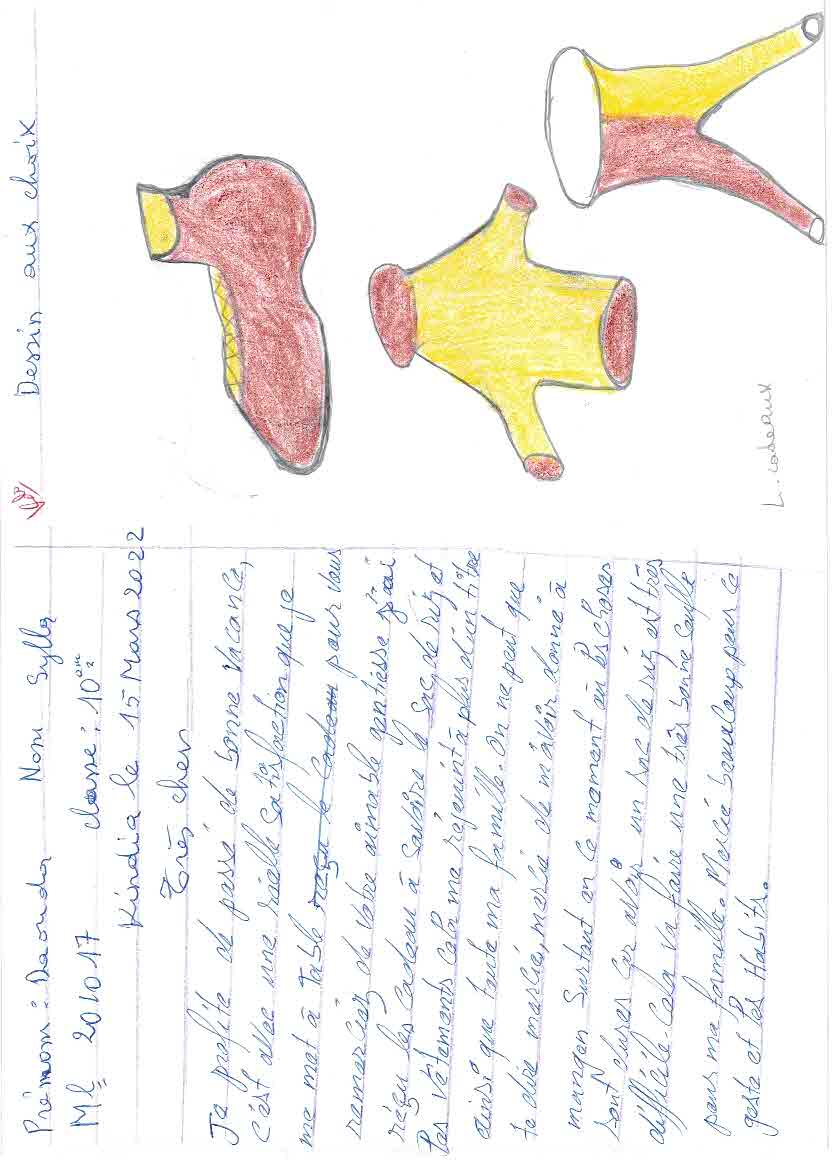 Prénom : Daouda Nom Sylla
Ml 201017 classe : 10em
Kindia le 15 Mars 2022
Très cher
Je profite de passé de bonne vacance,
c'est avec une réelle satisfaction que je
me met à table reçu le cadeau pour vous
remerciez de votre aimable gentiesse j'ai
réçu les cadeau à savoire le sac de riz et
les vêtements cela me réjouint à plus d'un titre
ainsi que toute ma famille. On ne peut que
te dire mercie, mercie de m'avoir donné à
manger surtant en ce moment où les choses
sont dures car avoir un sac de riz est très
difficile. Cela va faire une très bonne
pour ma famille. Mercie beaucoup pour ce
geste et les Habits.
Dessin aux choix
L. cadeaux